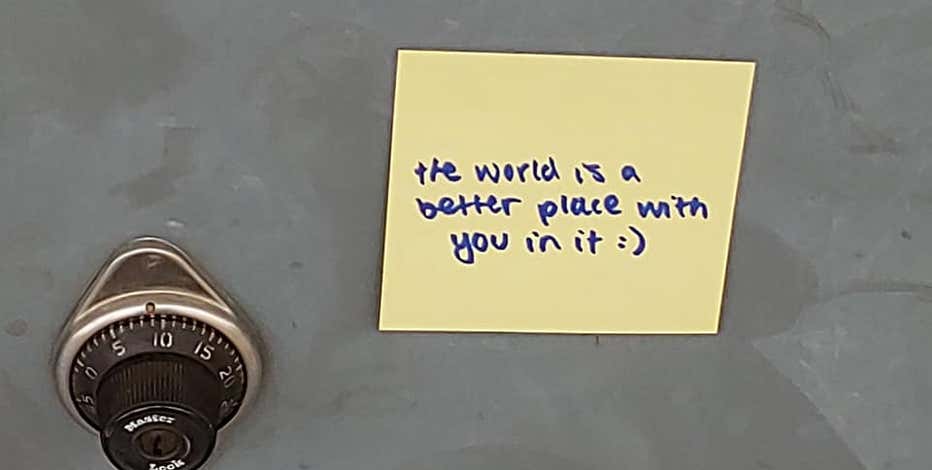 the world is a
better place with
you in it :)
0 5 10 15 20
Master
Lock